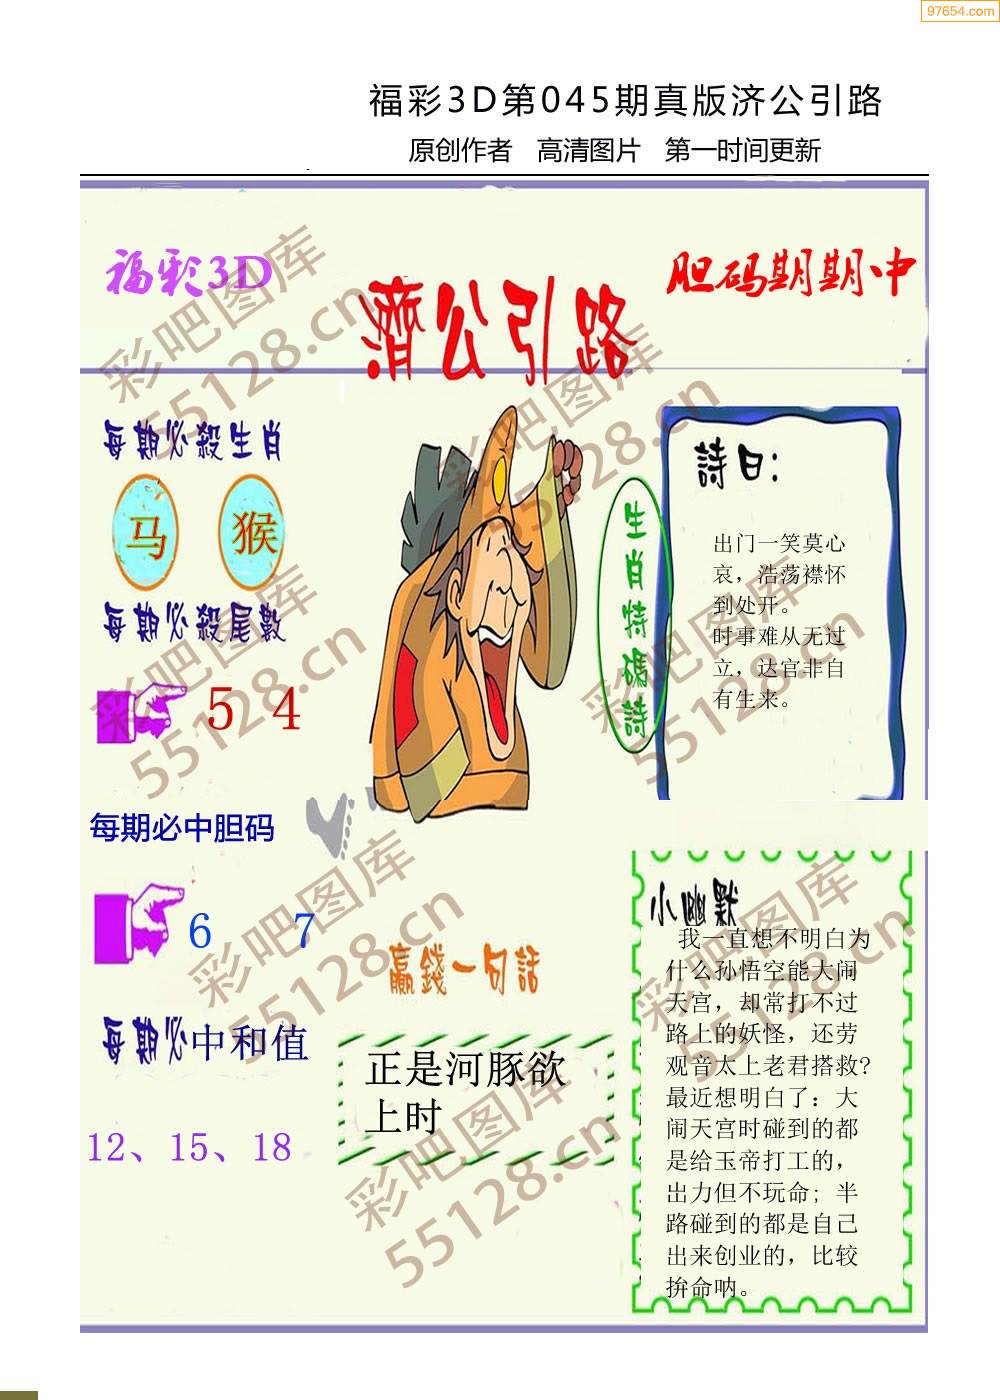 97654.com
福彩3D第045期真版济公引路
原创作者 高清图片 第一时间更新
福彩3D
濟公引路
胆码期期中
每期必殺生肖
马 猴
每期必殺尾數
5 4
每期必中胆码
6 7
每期必中和值
12、15、18
生肖特碼詩
詩曰：
出门一笑莫心
哀，浩荡襟怀
到处开。
时事难从无过
立，达官非自
有生来。
赢錢一句話
正是河豚欲
上时
小幽默
我一直想不明白为
什么孙悟空能大闹
天宫，却常打不过
路上的妖怪，还劳
观音太上老君搭救?
最近想明白了：大
闹天宫时碰到的都
是给玉帝打工的，
出力但不玩命；半
路碰到的都是自己
出来创业的，比较
拚命呐。
彩吧图库
55128.cn
彩吧图库
55128.cn
彩吧图库
55128.cn
彩吧图库
55128.cn
彩吧图库
55128.cn
彩吧图库
55128.cn
彩吧图库
55128.cn